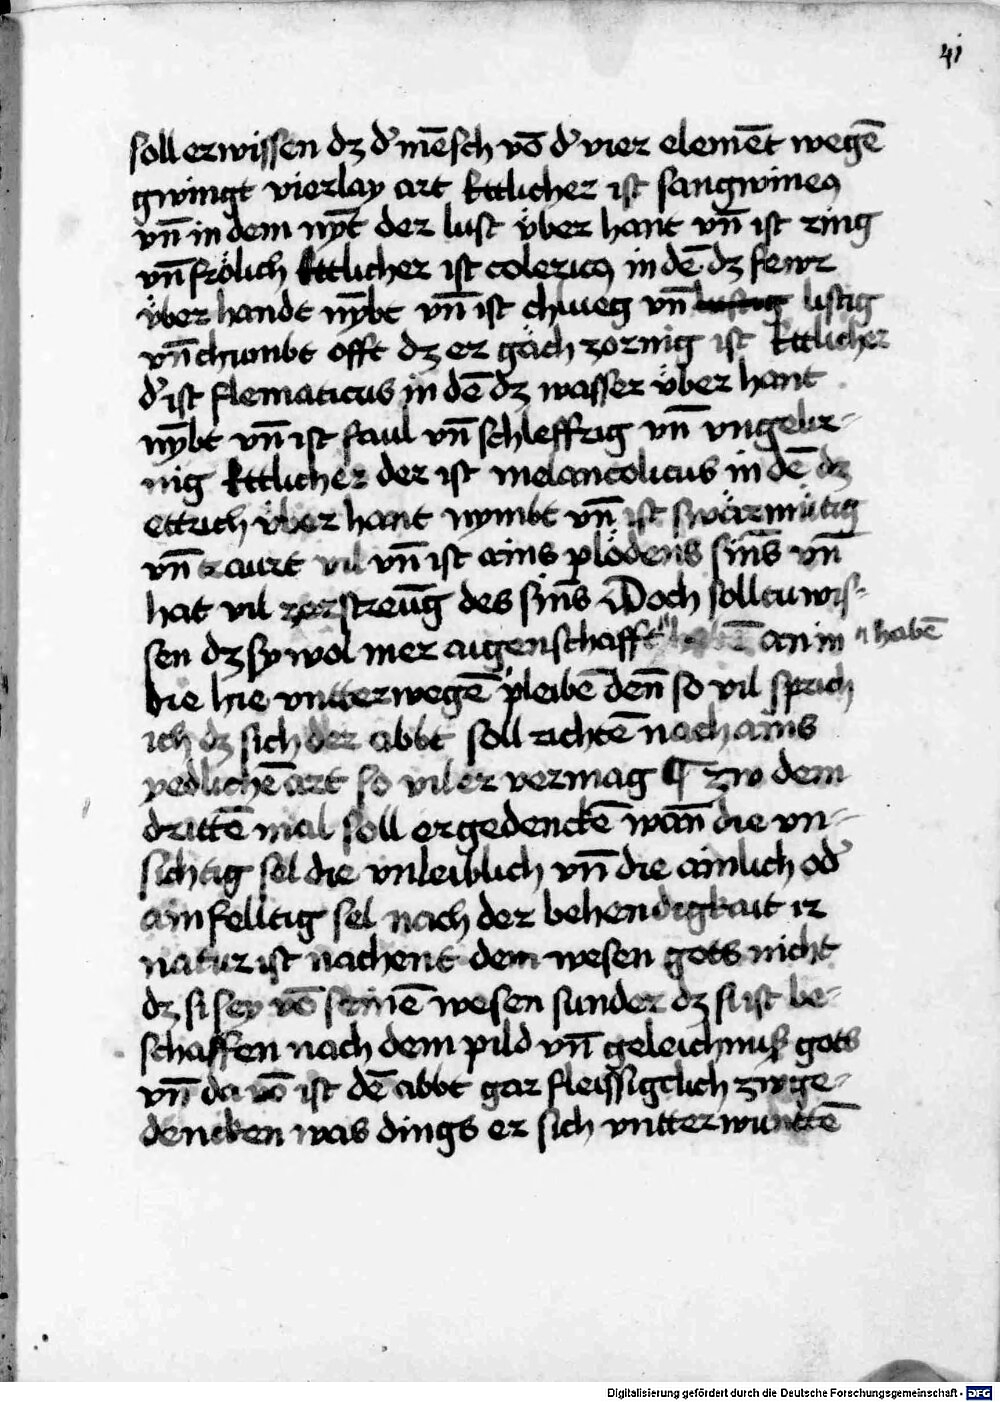 41
soll er wissen dz d' mēsch vō d' vier elemēt wegē
gwingt vierlay art Ettlicher ist sangwineꝯ
vn̄ in dem nȳt der lust v̈ber hant vn̄ ist ring
vn̄ frölich Ettlicher ist colericꝯ in dē dz fewr
v̈ber handt nȳbt vn̄ ist chlueg vn̄ lustig listig
vn̄ chumbt offt dz er gäch zornig ist Ettlicher
d' ist flematicus in dē dz wasser v̈ber hant
nȳbt vn̄ ist faul vn̄ schleffrig vn̄ vngelir-
nig Ettlicher der ist melancolicus in dē dz
ettrich v̈ber hant nymbt vn̄ ist swärmütig
vn̄ traurt vil vn̄ ist ains plödens sin̄s vn̄
hat vil zerstreūg des sin̄s Doch solltu wis-
sen dz sy wol mer aigenschafft an in habē
die hie vntterwegē pleibē den̄ so vil sprich
ich dz sich der abbt soll richtē nach ains
yedlichē art so vil er vermag ¶ zw dem
drittē mal soll er gedenckē wan̄ die vn-
sichtig sel die vnleiblich vn̄ die ainlich od'
ainfelltig sel nach der behendigkait ir
natur ist nachent dem wesen gots nicht
dz si sey vō seinē wesen sunder dz si ist be-
schaffen nach dem pild vn̄ geleichnuß gots
vn̄ da vō ist dē abbt gar fleissigclich zw ge-
dencken was dings er sich vntterwunttē
Digitalisierung gefördert durch die Deutsche Forschungsgemeinschaft - DFG